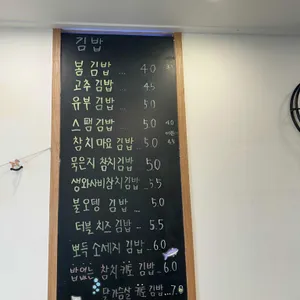 김밥
봄 김밥 ... 4.0
고추 김밥 4.5
유부 김밥 ... 5.0
스팸 김밥 5.0
참치 마요 김밥 ... 5.0
묵은지 참치김밥 5.0
생와사비참치김밥 ... 5.5
불오뎅 김밥 ... 5.0
더블 치즈 김밥 ... 5.5
뽀득 소세지 김밥 ... 6.0
밥없는 참치 키토 김밥 ... 6.0
닭가슴살 키토 김밥 ... 7.0